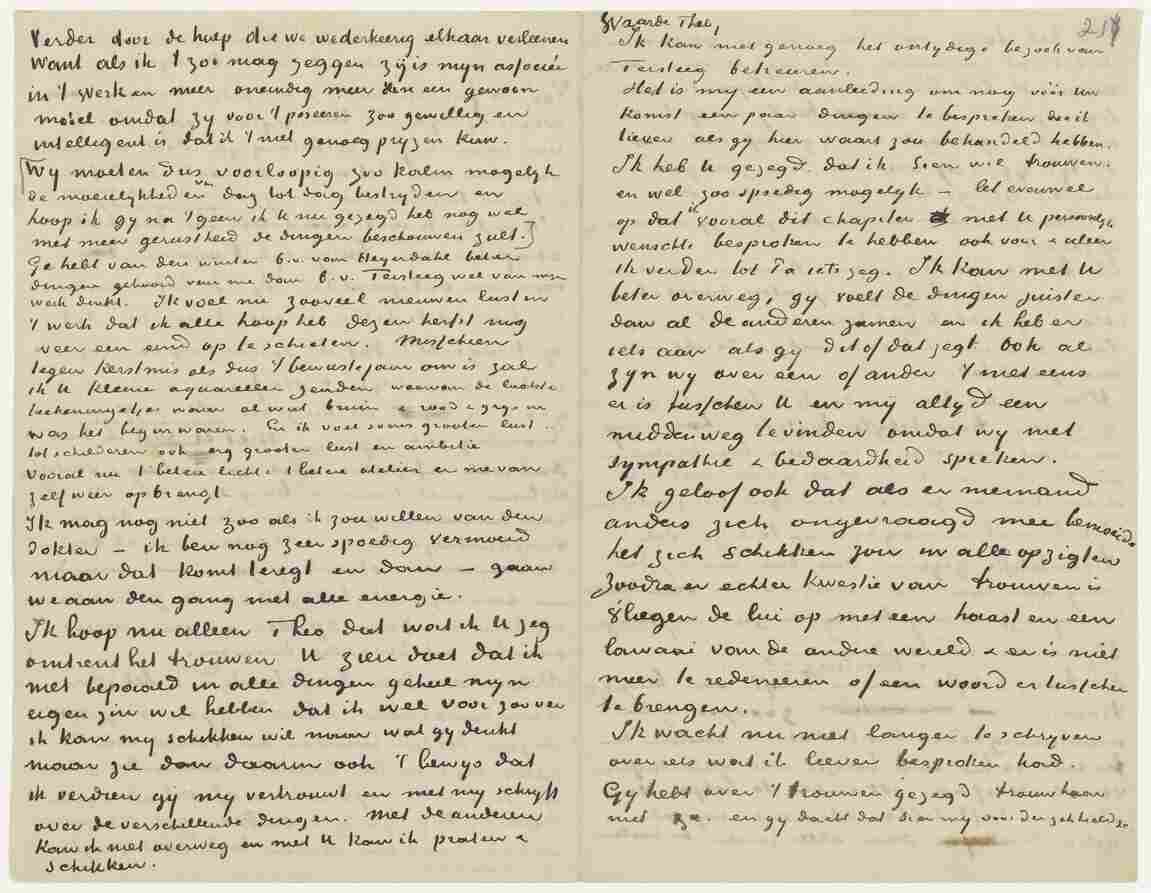 Verder door de hulp die we wederkeerig elkaar verleenen
Want als ik 't zoo mag zeggen zij is mijn associée
in 't werk en meer oneindig meer dan een gewoon
model omdat zy voor 't poseeren zoo gewillig en
intelligent is dat ik 't niet genoeg pryzen kan.
Wy moeten dus voorloopig zoo kalm mogelyk
de moeielykheden van dag tot dag bestryden en
hoop ik gy na 't geen ik U nu gezegd heb nog wel
met meer gerustheid de dingen beschouwen zult.]
Ge hebt van den winter b.v. van Heyerdahl beter
dingen gehoord van me dan b.v. Tersteeg wel van myn
werk denkt. Ik voel nu zooveel nieuwen lust in
't werk dat ik alle hoop heb dezen herfst nog
veer een eind op te schieten. Misschien
tegen Kerstmis als dus 't bewuste jaar om is zal
ik U kleine aquarellen zenden waarvan de laatste
teekeningetjes waar al wat bruin & rood & grys in
was het begin waren. En ik voel soms grooten lust
tot schilderen ook erg grooten lust en ambitie
vooral nu 't betere licht & 't betere atelier er me van
zelf weer op brengt
Ik mag nog niet zoo als ik zou willen van den
dokter – ik ben nog zeer spoedig vermoeid
maar dat komt teregt en dan – gaan
we aan den gang met alle energie.
Ik hoop nu alleen Theo dat wat ik U zeg
omtrent het trouwen U zien doet dat ik
niet bepaald in alle dingen geheel myn
eigen zin wil hebben dat ik wel voor zoo ver
ik kan my schikken wil naar wat gy denkt
maar zie dan daarin ook 't bewys dat
ik verdien gy my vertrouwt en met my schipt
over de verschillende dingen. Met de anderen
kan ik niet overweg en met U kan ik praten &
schikken.
Waarde Theo,
Ik kan niet genoeg het ontydige bezoek van
Tersteeg betreuren.
Het is my een aanleiding om nog vóór Uw
komst een paar dingen te bespreken die ik
liever als gy hier waart zou behandeld hebben.
Ik heb U gezegd dat ik Sien wil trouwen.
en wel zoo spoedig mogelyk – let evenwel
op dat ik vooral dit chapiter met U persoonlyk
wenschte besproken te hebben ook voor & aleer
ik verder tot Pa iets zeg. Ik kan met U
beter overweg, gy voelt de dingen juister
dan al de anderen zamen en ik heb er
iets aan als gy dit of dat zegt ook al
zyn wy over een of ander 't niet eens
er is tusschen U en my altyd een
middenweg te vinden omdat wy met
sympathie & bedaardheid spreken.
Ik geloof ook dat als er niemand
anders zich ongevraagd mee bemoeide
het zich schikken zou in alle opzigten
zoodra er echter kwestie van trouwen is
vliegen de lui op met een haast en een
lawaai van de andre wereld & er is niet
meer te redeneeren of een woord er tusschen
te brengen.
Ik wacht nu niet langer te schryven
over iets wat ik liever besproken had.
Gy hebt over 't trouwen gezegd trouw haar
niet en gy dacht dat Sien my voor den gek hield &